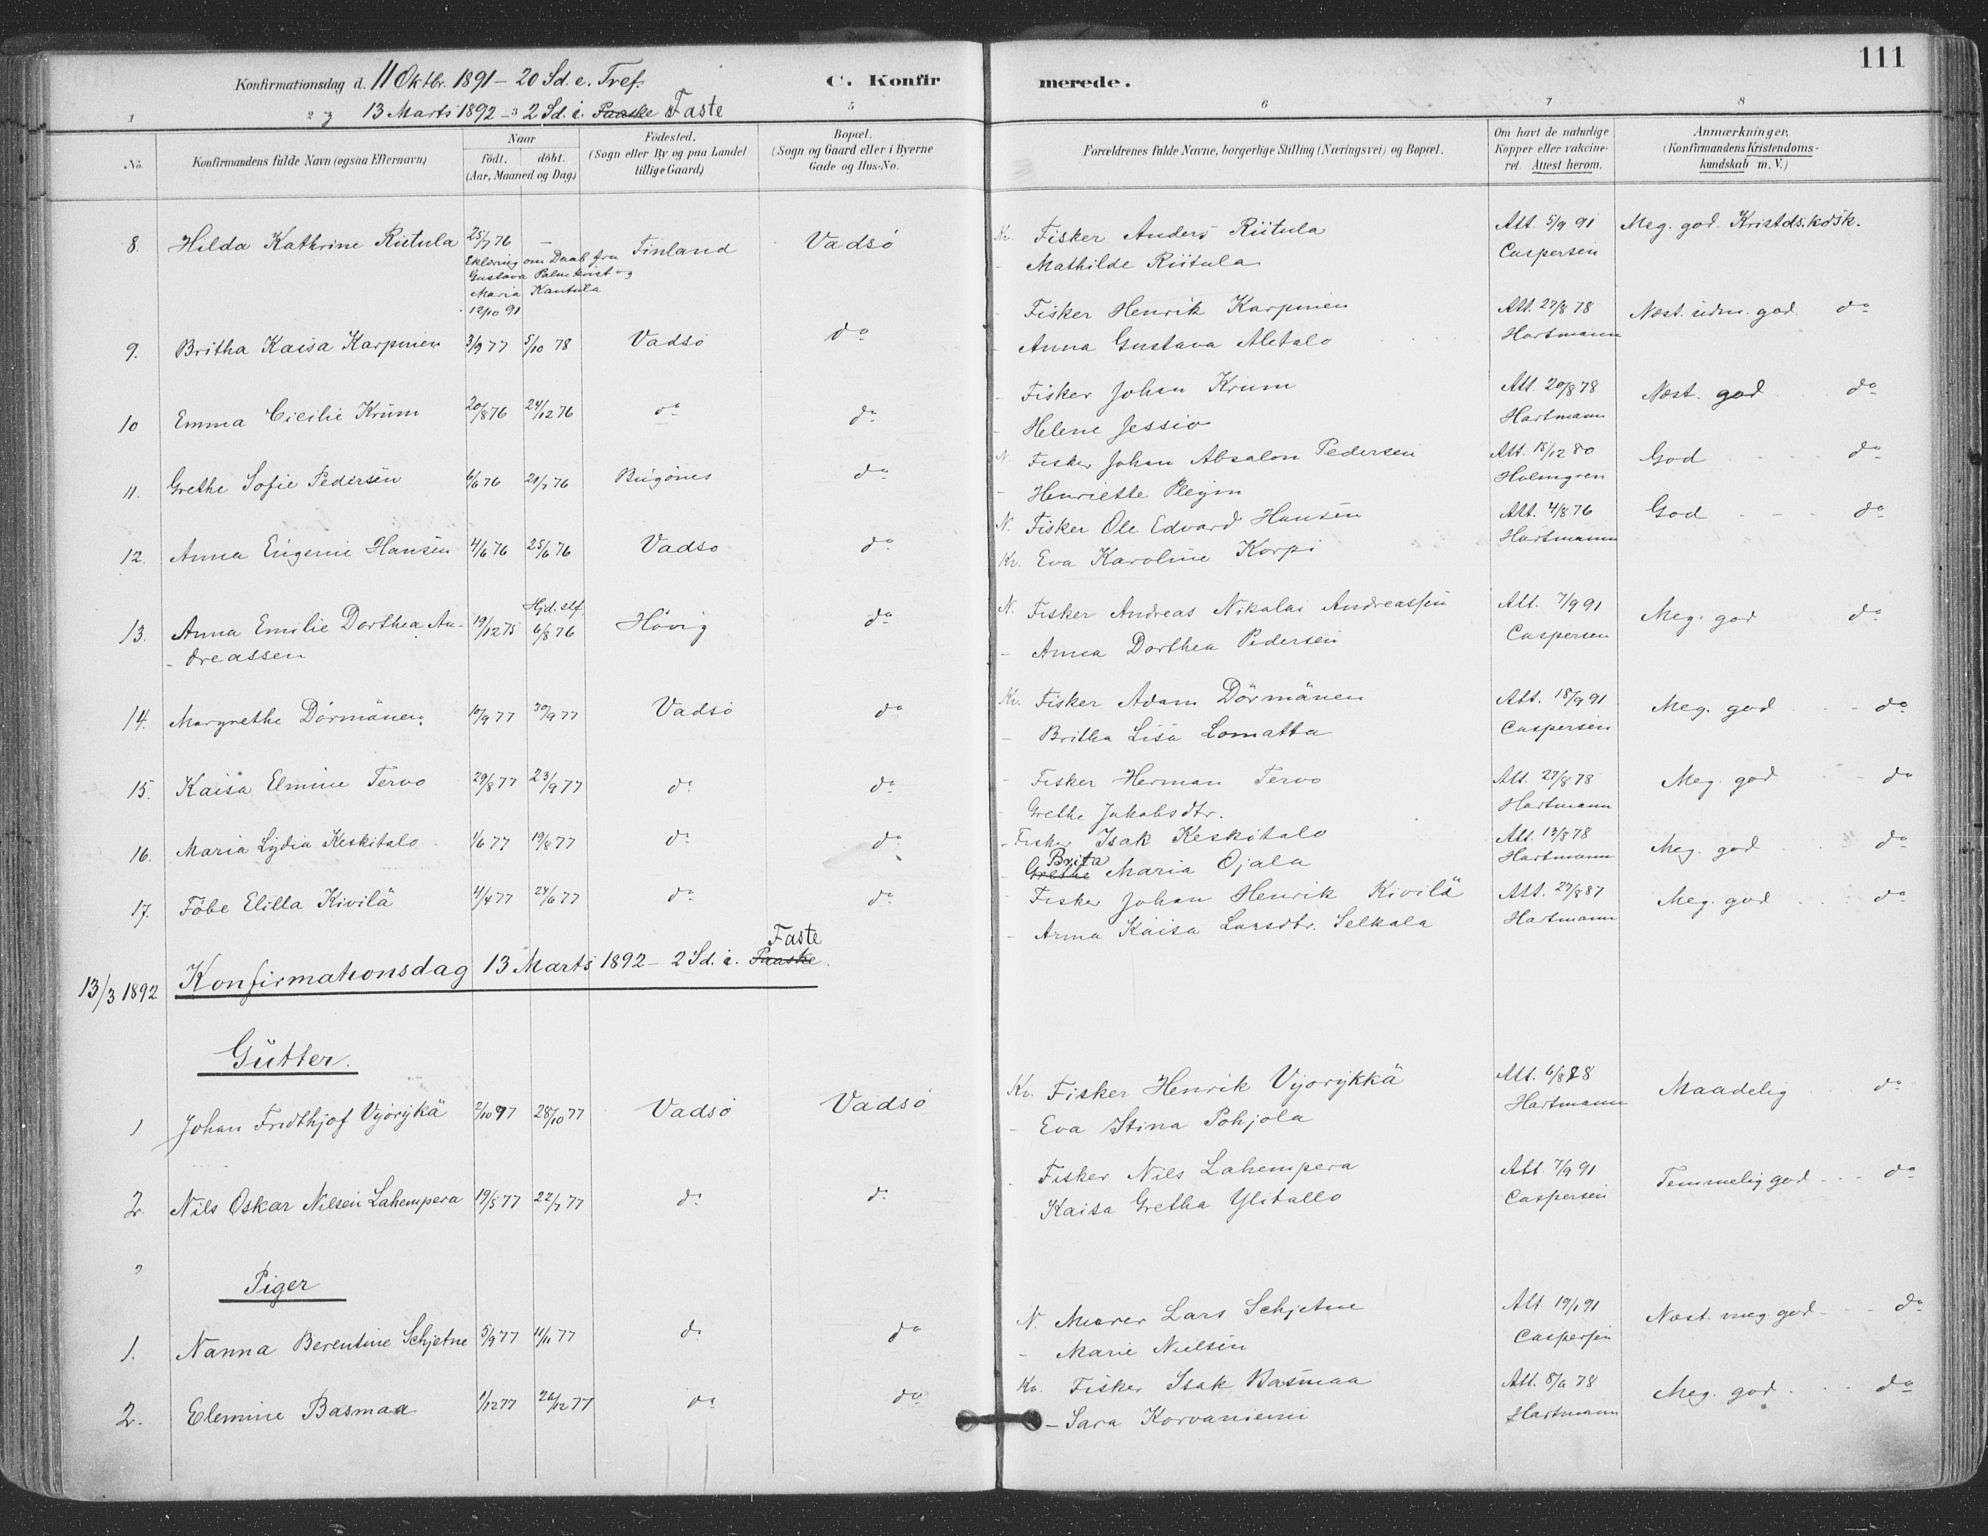 111
Konfirmationsdag d. 11 Oktbr. 1891 - 20 Sd. e. Tref. C. Konfirmerede.
13 Marts 1892 - 2 Sd. i. Paaske Faste
1 2 3 5 6 7 8
No. Konfirmandens fulde Navn (ogsaa Efternavn) Naar født, døbt. (Aar, Maaned og Dag) Fødested. (Sogn eller By og paa Landet tillige Gaard) Bopæl. (Sogn og Gaard eller i Byerne Gade og Hus-No. Forældrenes fulde Navne, borgerlige Stilling (Næringsvei) og Bopæl. Om havt de naturlige Kopper eller vaccineret. Attest herom. Anmærkninger. (Konfirmandens Kristendomskundskab m. V.)
8. Hilda Kathrine Riitula 25/7 76 - Finland Vadsö Kv. Fisker Anders Riitula Att. 5/9 91 Meg. god. Kristds.kdsk.
Eklæring om Daab fra Gustava Palmkvist og Maria Kantula 12/10 91
- Mathilde Riitula Caspersen
9. Britha Kaisa Karpinen 3/9 77 5/10 78 Vadsö do - Fisker Henrik Karpinen Att. 27/8 78 Næst. udm. god do
- Anna Gustava Aletalo Hartmann
10 Emma Cicilie Krum 20/8 76 24/12 76 do do - Fisker Johan Krum Att. 20/8 78 Næst. god do
- Helene Jessio Hartmann
11. Grethe Sofie Pedersen 6/6 76 21/7 76 Bugönes do N. Fisker Johan Absalon Pedersen Att. 15/12 80 God do
- Henriette Pleym Holmgren
12. Anna Eugenie Hansen 4/6 76 25/6 76 Vadsö do N. Fisker Ole Edvard Hansen Att. 4/8 76 God do
Kv. Eva Karoline Korpi Hartmann
13. Anna Emilie Dorthea An- 19/12 75 Hjd. slf 6/8 76 Hövig do N. Fisker Andreas Nikolai Andreassen Att. 7/9 91 Meg. god do
- dreassen - Anna Dorthea Pedersen Caspersen
14. Margrethe Dörmänen 10/9 77 30/9 77 Vadsö do Kv. Fisker Adam Dörmänen Att. 18/9 91 Meg. god do
- Britha Lisa Lomatta Caspersen
15. Kaisa Elmine Tervo 29/8 77 23/9 77 do do - Fisker Herman Tervo Att. 27/8 78 Meg. god do
Grethe Jakobsdtr. Hartmann
16. Maria Lydia Keskitalo 1/6 77 19/8 77 do do - Fisker Isak Keskitalo Att. 13/8 78 Meg. god do
- Grethe Brita Maria Ojala Hartmann
17. Föbe Elilla Kivilä 4/4 77 24/6 77 do do - Fisker Johan Henrik Kivilä Att. 27/8 87 Meg. god do
- Anna Kaisa Larsdtr. Selkala Hartmann
13/3 1892 Konfirmationsdag 13 Marts 1892 - 2 Sd. i. Paaske Faste
Gutter.
1 Johan Fridthjof Vyörykä 2/10 77 28/10 77 Vadsö Vadsö Kv. Fisker Henrik Vyörykkä Att. 6/8 78 Maadelig do
- Eva Stina Pohjola Hartmann
2. Nils Oskar Nilsen Lahempera 19/5 77 22/7 77 do do - Fisker Nils Lahempera Att. 7/9 91 Temmelig god do
Kaisa Gretha Ylitallo Caspersen
Piger
1. Nanna Berentine Schjetne 5/9 77 11/11 77 do do N. Murer Lars Schjetne Att. 19/1 91 Næst. meg god do
- Marie Nielsen Caspersen
2. Elemine Basmaa 1/12 77 26/12 77 do do Kv. Fisker Isak Basmaa Att. 8/10 78 Meg. god do
- Sara Korvaniemi Hartmann